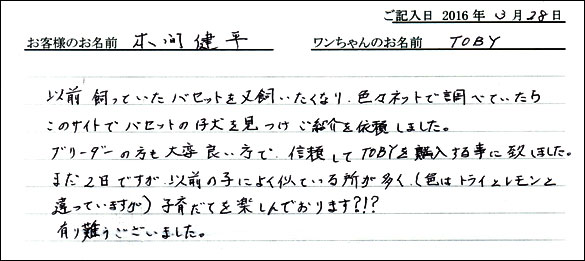 ご記入日 2016年 3月 28日
お客様のお名前 本間 健平 ワンちゃんのお名前 TOBY
以前 飼っていたバセットを又飼いたくなり、色々ネットで調べていたら
このサイトでバセットの仔犬を見つけ ご紹介を依頼しました。
ブリーダーの方も大変良い方で、信頼してTOBYを購入する事に致しました。
まだ2日ですが、以前の子によく似ている所が多く、(色はトライとレモンと
違っていますが) 子育だてを楽しんでおります?!?
有り難うございました。